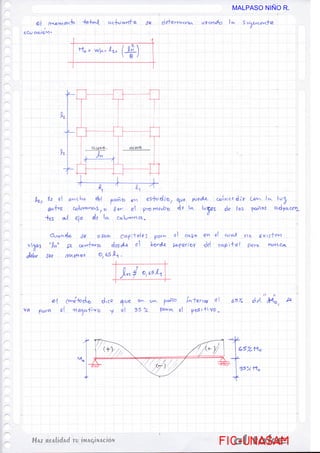 MALPASO NIÑO R.
el momento total actuante se determina usando la siguiente
ecuación.
M₀ = Wu · l₂ₜ (ln² / 8)
l₂
l₂
ln
l₁ l₁
l₂ₜ es el ancho del paño en estudio, que puede coincidir con la luz
entre columnas, o ser el promedio de la luces de los paños adyacen_
tes al eje de la columna.
Cuando se usan capiteles para el caso en el cual no existen
vigas "ln" se contara desde el borde superior del capitel pero nunca
debe ser menor 0,65 l₁.
ln ≮ 0,65 l₁
el método dice que en un paño interior el 65% del "M₀", se
va para el negativo y el 35% para el positivo.
(+) (+)
65% M₀
M₀
(-)
35% M₀
Haz realidad tu imaginación
FIC-UNASAM